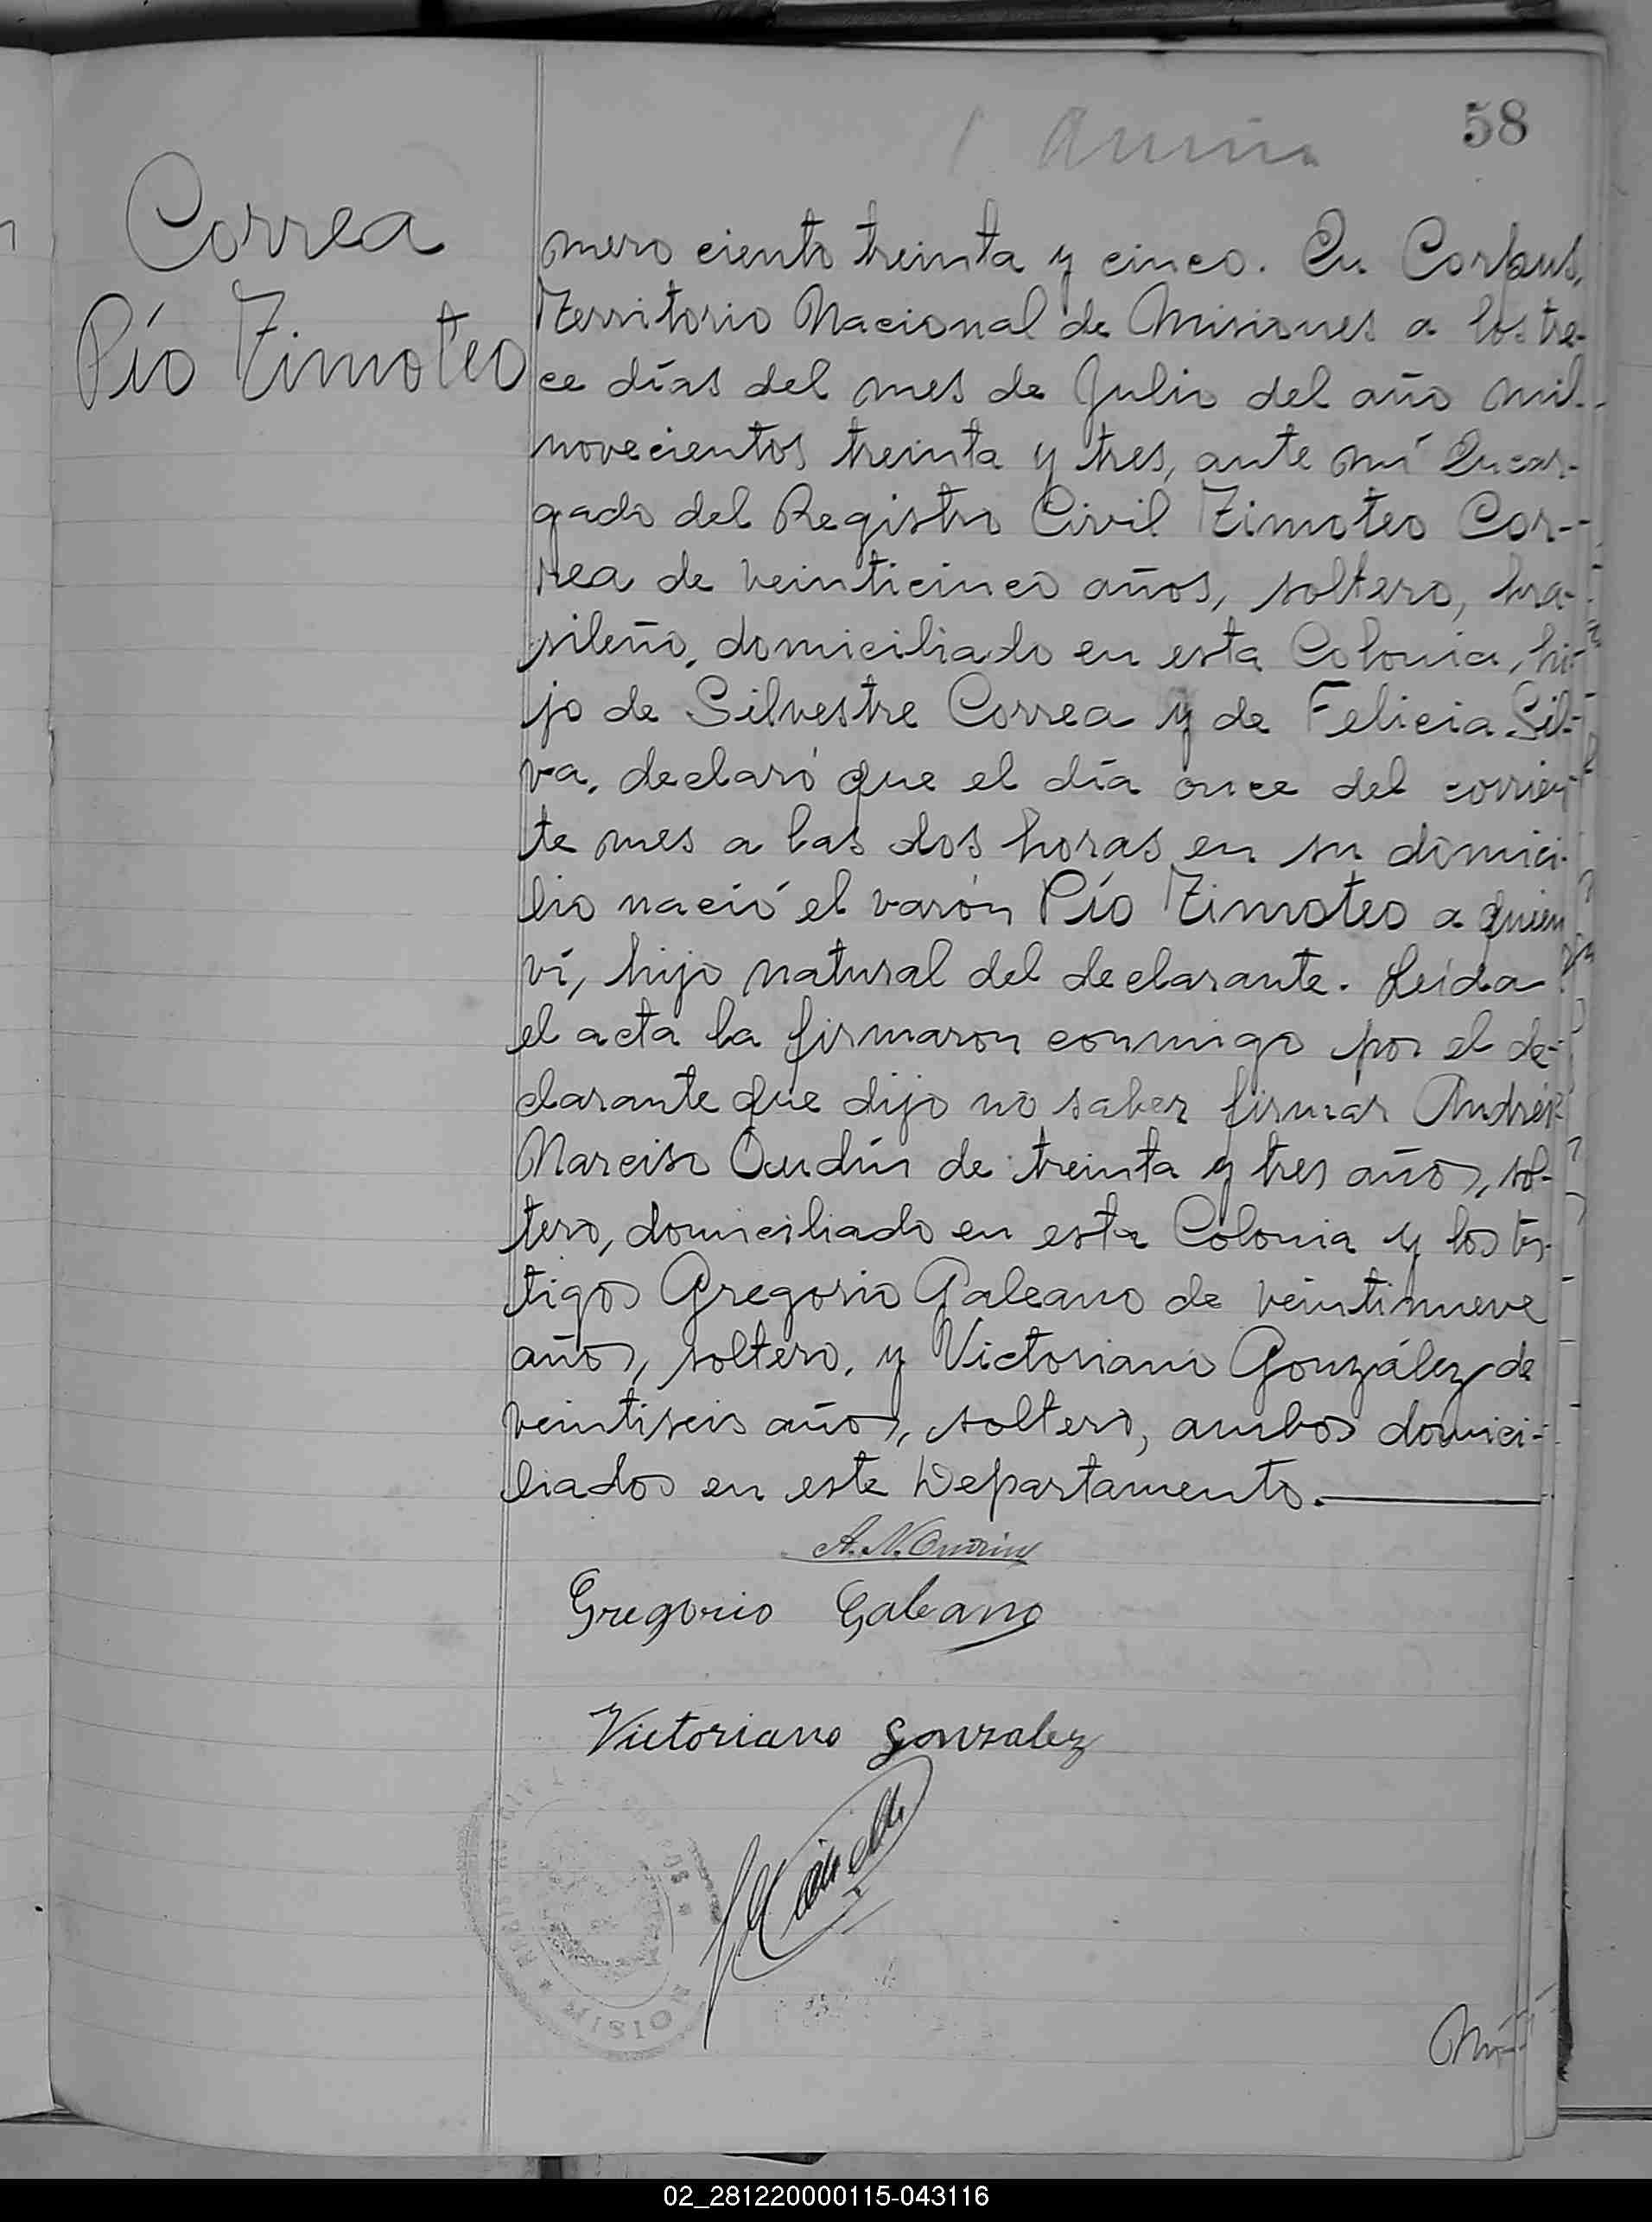 58
Correa
Pío Timoteo
mero ciento treinta y cinco. En Corpus,
Territorio Nacional de Misiones a los tre-
ce días del mes de Julio del año mil
novecientos treinta y tres, ante mí Encar-
gado del Registro Civil Timoteo Cor-
rea de veinticinco años, soltero, bra-
sileño, domiciliado en esta Colonia, hi-
jo de Silvestre Correa y de Felicia Sil-
va, declaró que el día once del corrien
te mes a las dos horas en su domici-
lio nació el varón Pío Timoteo a quien
ví, hijo natural del declarante. Leída
el acta la firmaron conmigo por el de-
clarante que dijo no saber firmar Andrés
Narciso Oudín de treinta y tres años, sol-
tero, domiciliado en esta Colonia y los tes-
tigos Gregorio Galeano de veintinueve
años, soltero, y Victoriano González de
veintiseis años, soltero, ambos domici-
liados en este Departamento.
A. N. Oudin
Gregorio Galeano
Victoriano Gonzalez
Nú
02_281220000115-043116